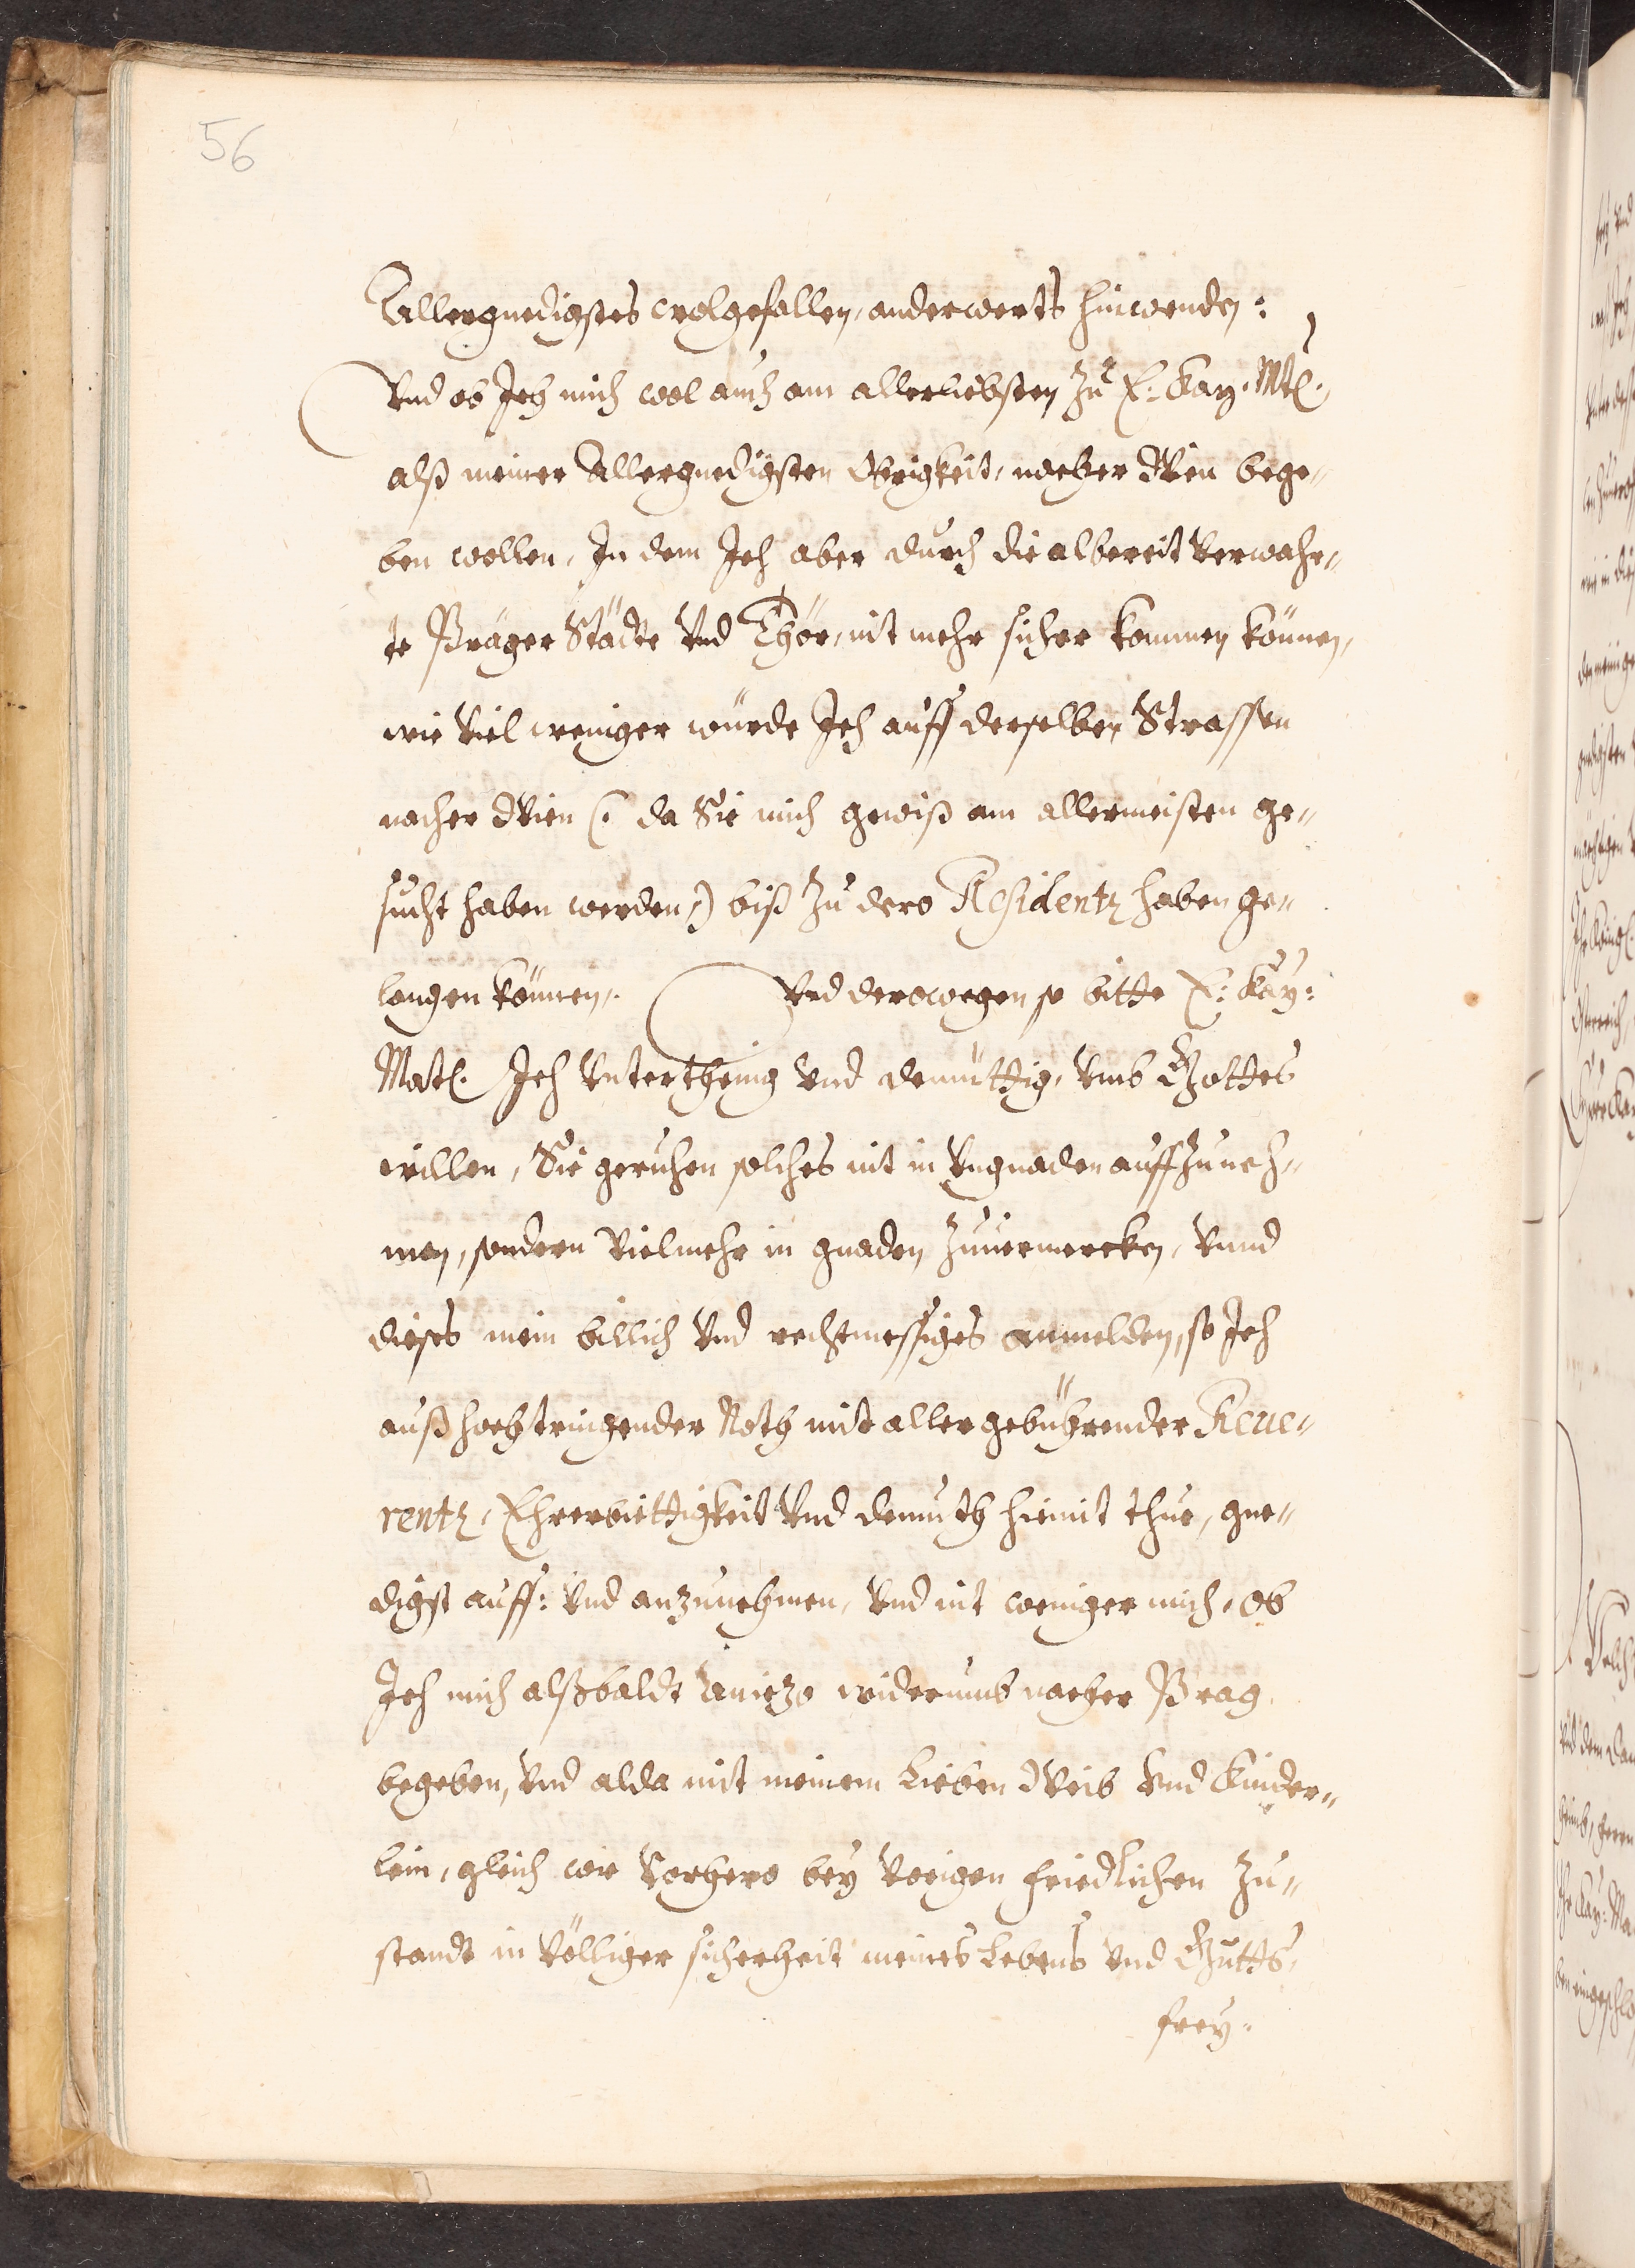 56
Allergnedigstes wolgefallen, anderwerts hinwenden:
Vnd ob Ich mich wol auch am allerliebsten Zu E: Kay. Mtt.
alß meiner Allergnedigsten Obrigkeit, nacher Wien bege„
ben wollen, In dem Ich aber durch die albereit verwahr„
te Präger Städte Vnd Thör, nit mehr sicher kommen können,
wie Viel weniger würde Ich auff derselben Strassen
nacher Wien (: da Sie mich gewiß am allermeisten ge„
sucht haben werden,) biß Zu dero Residentz haben ge„
langen können,. Vnd derowegen so bitte E: Kay:
Matt. Ich Vnterthenig Vnd demüttig, Vmb Gottes
willen, Sie geruhen solches nit in Vngnaden auffzuneh„
men, sondern Vielmehr in gnaden Zuuermercken, Vnnd
dieses mein billich Vnd rechtmessiges anmelden, so Ich
auß hochtringender Noth mit aller gebührender Reue„
rentz, Ehrerbiettigkeit Vnd demuth hiemit thue, gne„
digst auff: Vnd anzunehmen, Vnd nit weniger mich, Ob
Ich mich alßbaldt Aniezo widerumb nacher Prag
begeben, Vnd alda mit meinem Lieben Weib Vnd Kinder„
lein, gleich wie Vorhero bey Vorigen friedlichen Zu„
standt in Völliger sicherheit meines Lebens Vnd Gutts,
frey.